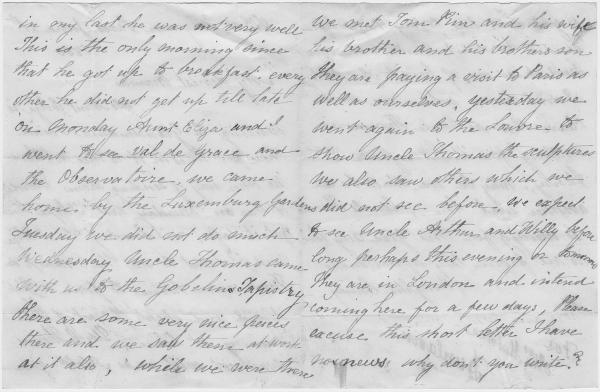 in my last he was not very well
This is the only morning since
that he got up to breakfast. every
other he did not get up till late
on Monday Aunt Eliza and I
went to see Val de Grace and
the Observatoire, we came
home by the Luxemburg Gardens
Tuesday we did not do much
Wednesday Uncle Thomas came
with us to the Gobelins Tapistry
there are some very nice pieces
there and we saw them at work
at it also, while we were there
We met Tom Pim and his wife
his brother and his brothers son
They are paying a visit to Paris as
well as ourselves, yesterday we
went again to the Louvre to
show Uncle Thomas the sculptures
We also saw others which we
did not see before, We expect
to see Uncle Arthur and Willy before
long perhaps this evening or tomorrow
They are in London and intend
coming here for a few days, Please
excuse this short letter I have
no news why don't you write?